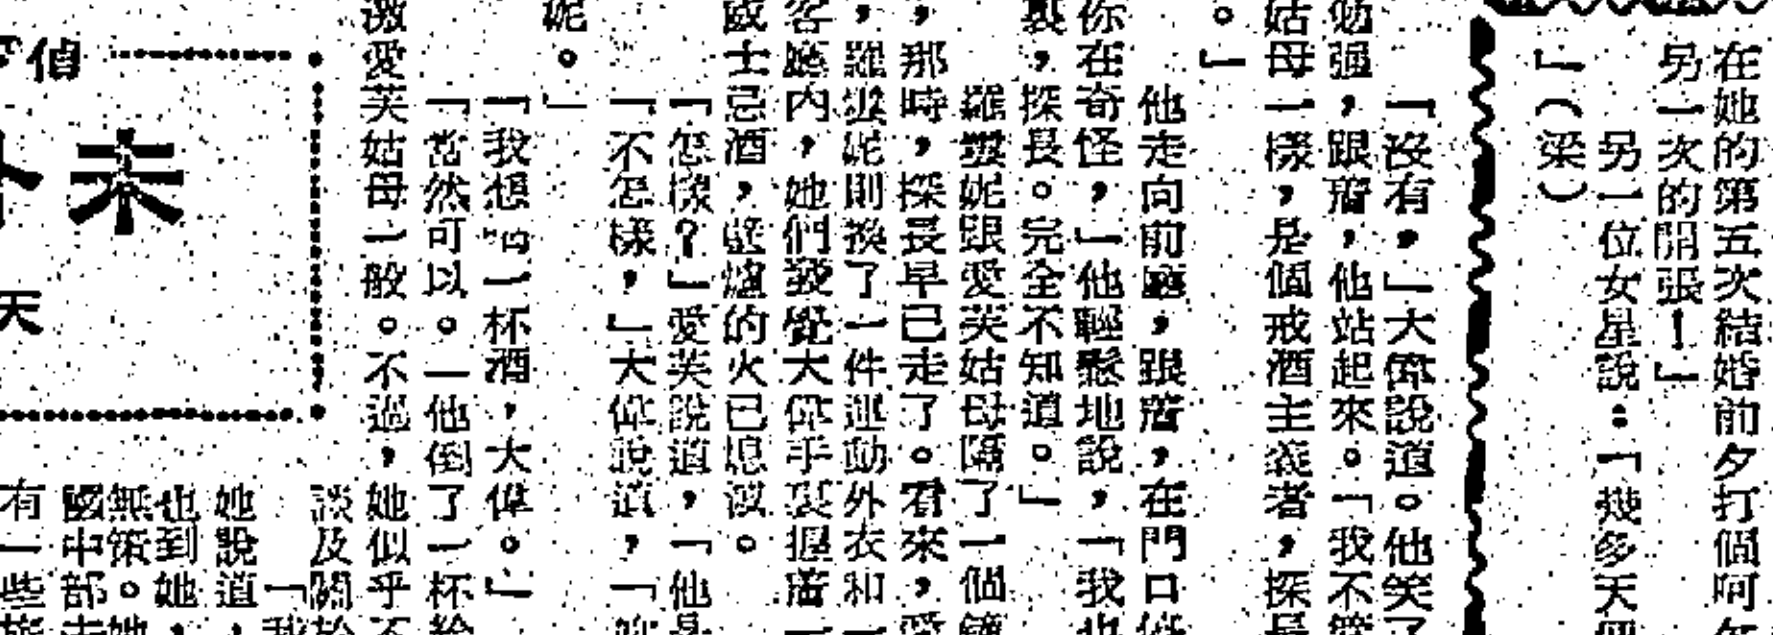 在她的第五次結婚前夕打個呵
另一次的開張！」
另一位女星說：「幾多天
」（梁）
「沒有，」大偉說道。他笑了
勉强，跟着，他站起來。「我不
姑母一樣，是個戒酒主義者，探長
。」
他走向前廳，跟着，在門口
你在奇怪，」他輕鬆地說，「我也
裏，探長。完全不知道。」
羅娜妮跟愛芙姑母隔了一個鐘
，那時，探長早已走了。看來，愛
，羅娜妮則換了一件運動外衣和一
客廳内，她們發覺大偉手裏握着一
威士忌酒，壁爐的火已熄滅。
「怎樣？」愛芙說道，「他是
「不怎樣，」大偉說道，「
呢。」
「我想喝一杯酒，大偉。」
「當然可以。」他倒了一杯給
激愛芙姑母一般。不過，她似乎不
談及關於
「我
她說道，
也到她，
無策。她
國中部
有一些
偵
未
天